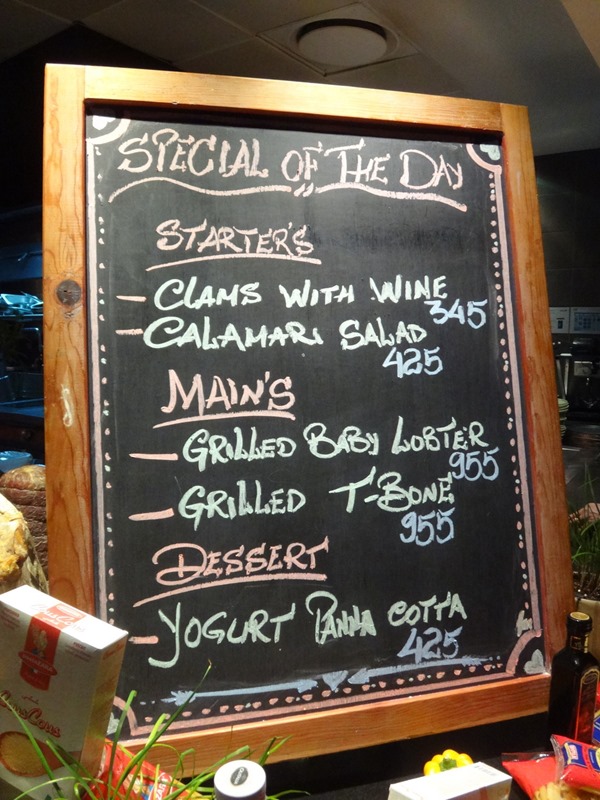 SPECIAL OF THE DAY
STARTER'S
- CLAMS WITH WINE
345
- CALAMARI SALAD
425
MAIN'S
- GRILLED BABY LOBTER
955
- GRILLED T-BONE
955
DESSERT
- YOGURT PANNA COTTA
425